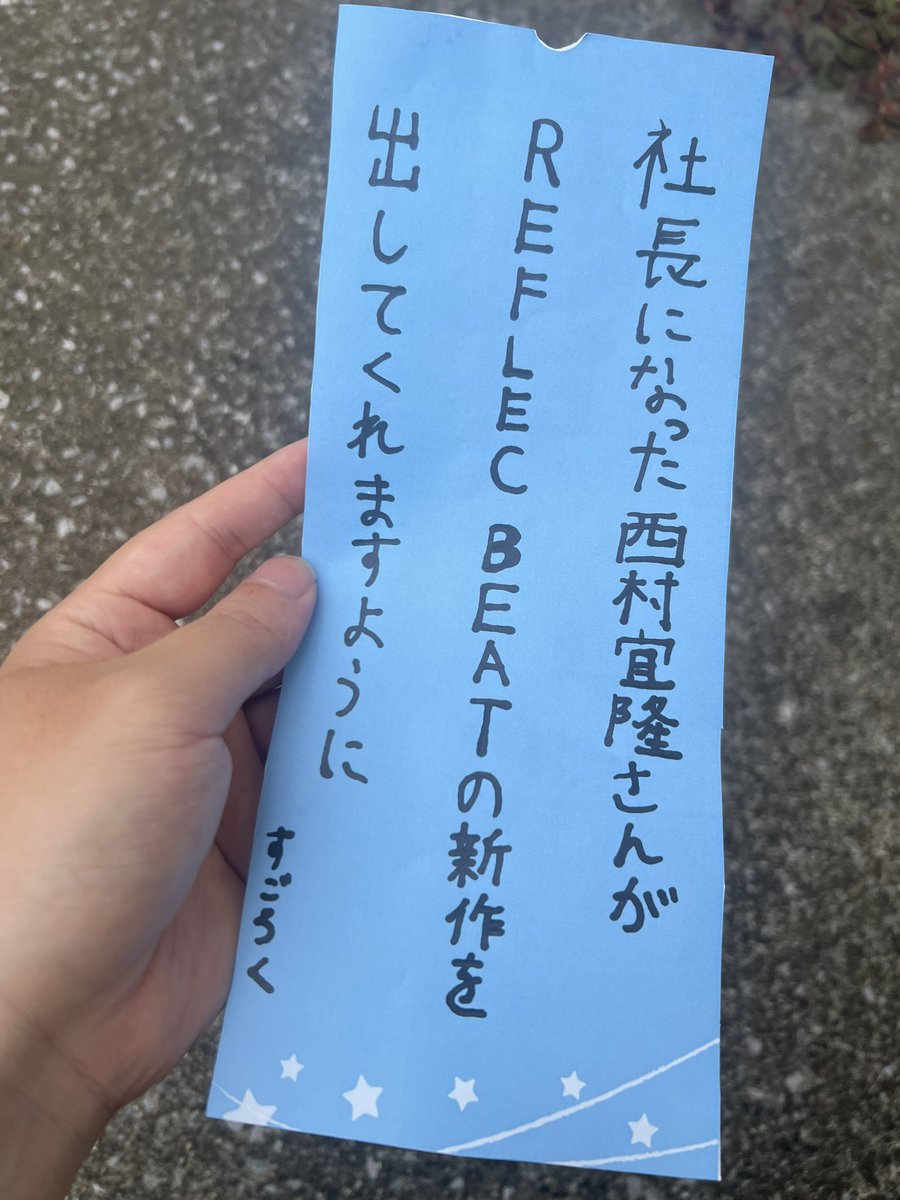 社長になった西村宜隆さんが
REFLEC BEATの新作を
出してくれますように
すごろく